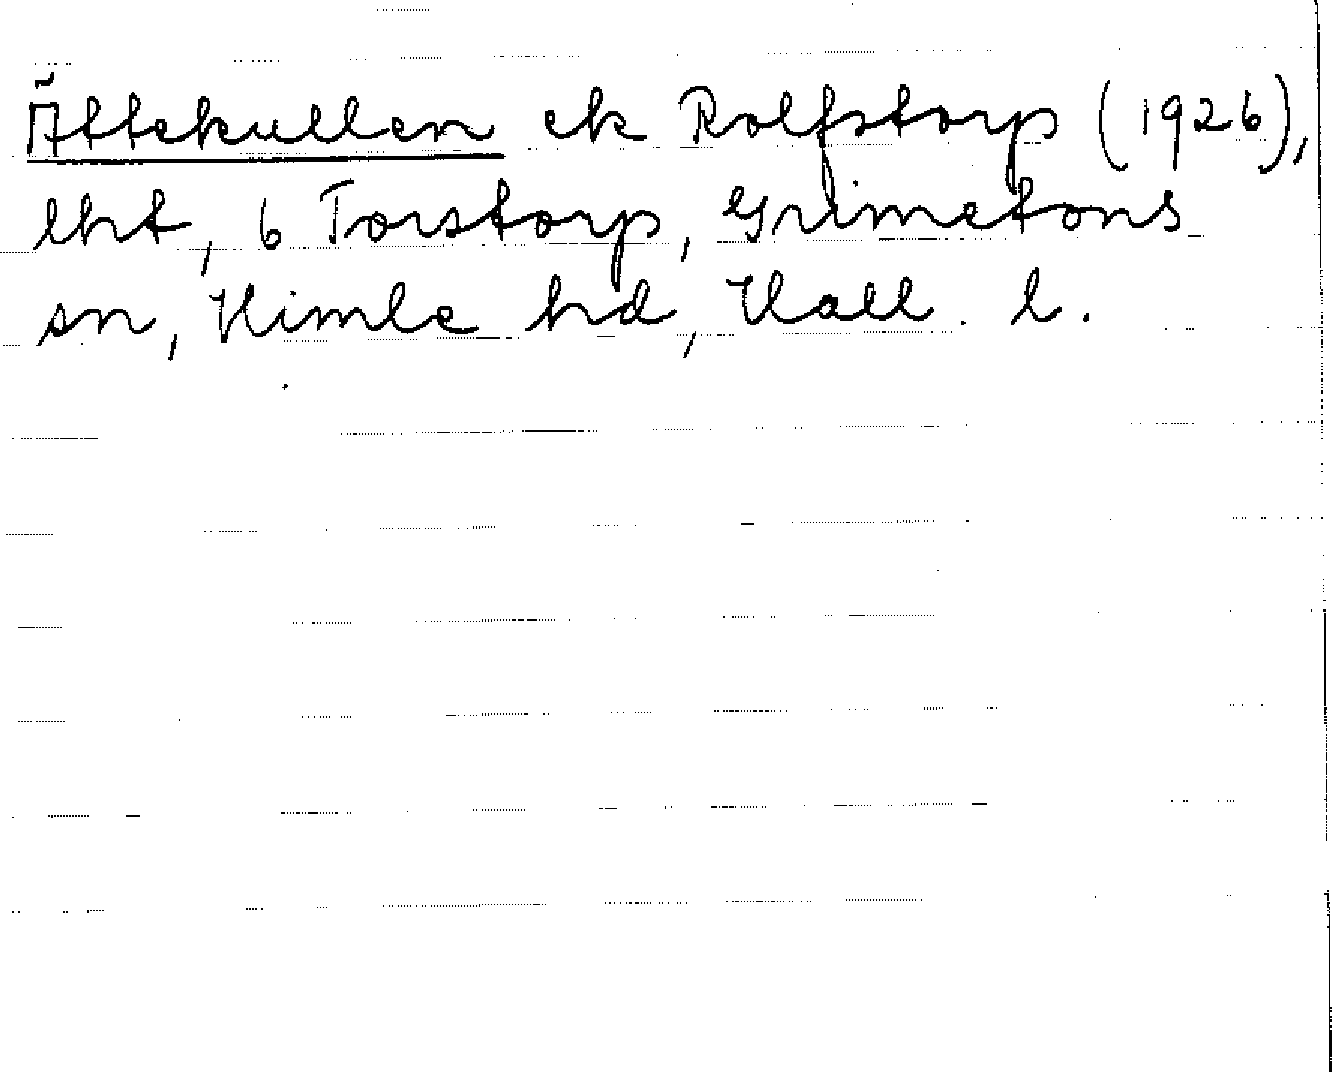 Ättekullen ek Rolfstorp (1926),
lht, 6 Torstorp, Grimetons
sn, Himle hd, Hall. l.